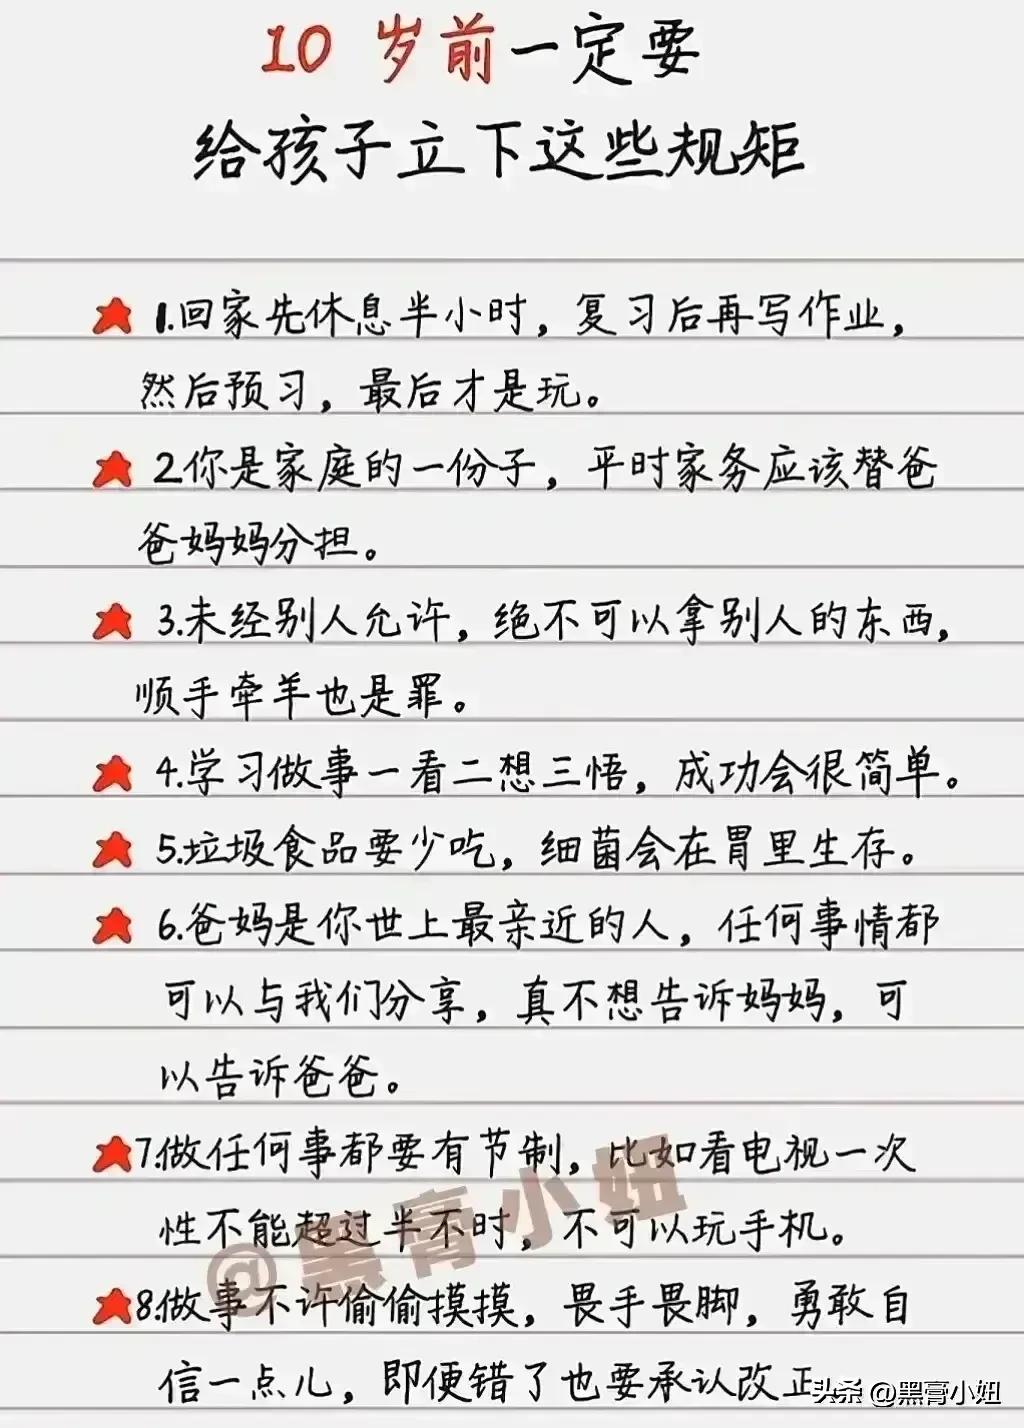 10 岁前一定要
给孩子立下这些规矩
1.回家先休息半小时，复习后再写作业，
然后预习，最后才是玩。
2.你是家庭的一份子，平时家务应该替爸
爸妈妈分担。
3.未经别人允许，绝不可以拿别人的东西，
顺手牵羊也是罪。
4.学习做事一看二想三悟，成功会很简单。
5.垃圾食品要少吃，细菌会在胃里生存。
6.爸妈是你世上最亲近的人，任何事情都
可以与我们分享，真不想告诉妈妈，可
以告诉爸爸。
7.做任何事都要有节制，比如看电视一次
性不能超过半不时，不可以玩手机。
@黑膏小妞
8.做事不许偷偷摸摸，畏手畏脚，勇敢自
信一点儿，即便错了也要承认改正
头条 @黑膏小妞